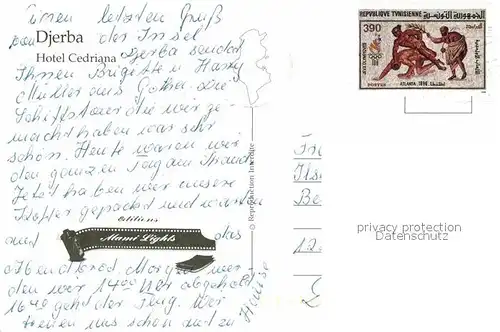 Einen letzten Gruß
von der Insel
Djerba
Djerba sendet
Hotel Cedriana
Ihnen Brigitte u. Harry
Müller aus Gotha. Die
Schiffstour die wir ge-
macht haben war sehr
schön. Heute waren wir
den ganzen Tag am Strand
Jetzt haben wir unsere
Koffer gepackt und warten
éditions
auf das
Miami Lights
Abendbrod. Morgen wer-
den wir 14⁰⁰ Uhr abgeholt
16⁴⁰ geht der Flug. Wir
freuen uns schon auf zu
Hause
© Reproduction Interdite
REPUBLIQUE TUNISIENNE
الجمهورية التونسية
390
ATLANTA 1996
POSTES
privacy protection
Datenschutz